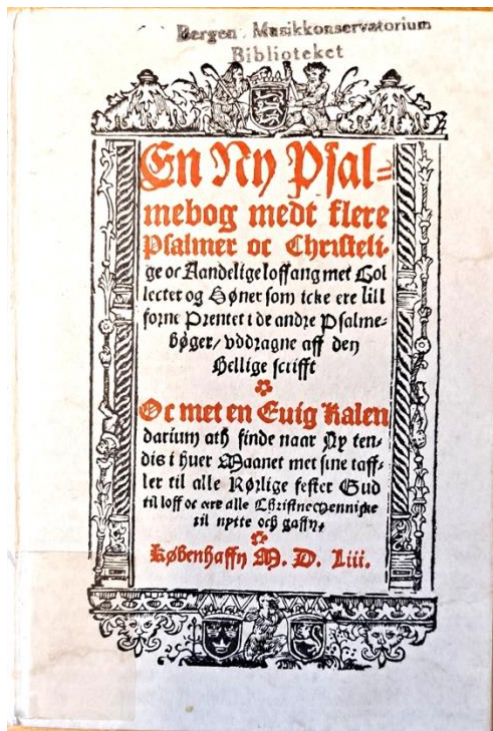 Bergen Musikkonservatorium
Biblioteket
En Ny Psal=
mebog medt flere
Psalmer oc Christeli-
ge oc Aandelige loffsang met Col
lecter og Bøner som icke ere till
forne Prentet i de andre Psalme-
bøger/ vddragne aff den
Hellige scrifft
Oc met en Euig Kalen
darium ath finde naar Ny ten-
dis i huer Maanet met sine taff-
ler til alle Rørlige fester Gud
til loff oc ære alle Christne menniske
til nytte och gaffn
Københaffn M. D. Liii.